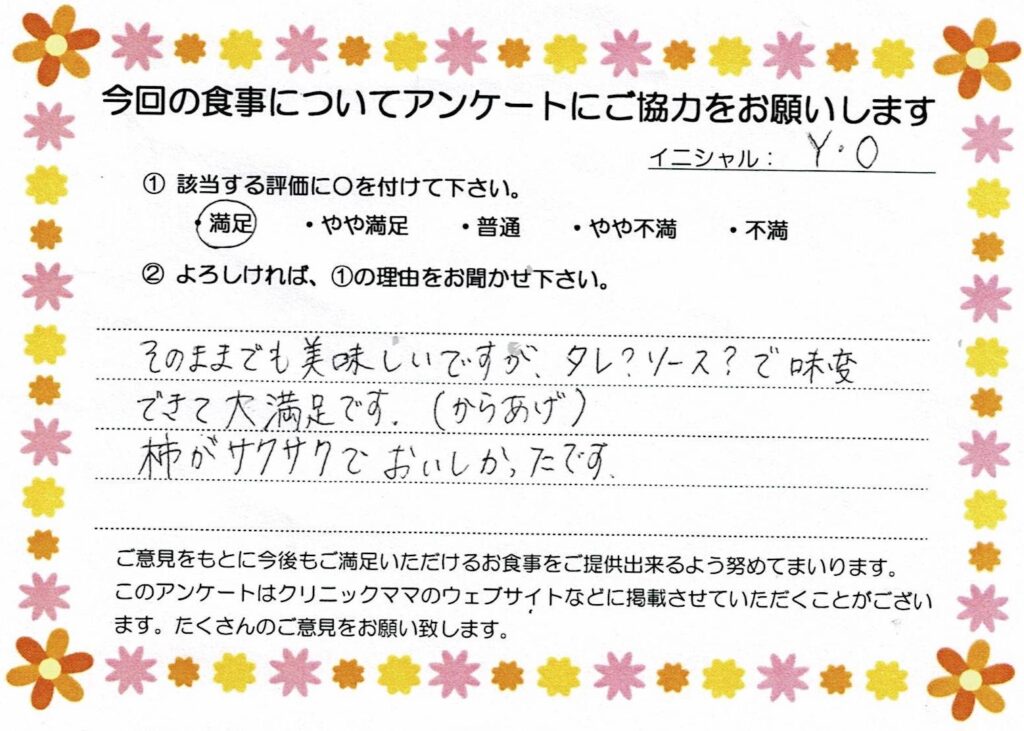 今回の食事についてアンケートにご協力をお願いします
イニシャル： Y・O
① 該当する評価に〇を付けて下さい。
・満足 ・やや満足 ・普通 ・やや不満 ・不満
② よろしければ、①の理由をお聞かせ下さい。
そのままでも美味しいですが、タレ?ソース?で味変
できて大満足です。(からあげ)
柿がサクサクでおいしかったです。
ご意見をもとに今後もご満足いただけるお食事をご提供出来るよう努めてまいります。
このアンケートはクリニックママのウェブサイトなどに掲載させていただくことがござい
ます。たくさんのご意見をお願い致します。